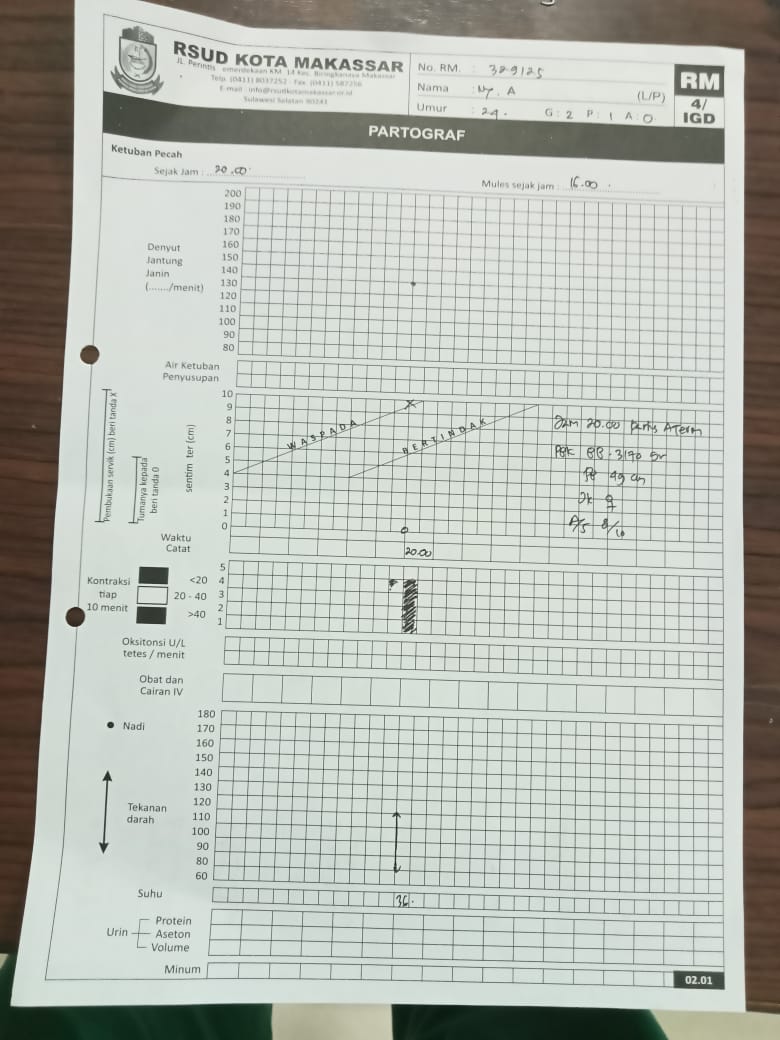 RSUD KOTA MAKASSAR
JL. Perintis Kemerdekaan KM. 14 Kec. Biringkanaya Makassar
Telp. (0411) 8037252 - Fax. (0411) 587256
E-mail : info@rsudkotamakassar.or.id
Sulawesi Selatan 90243
No. RM. : 389125
Nama : Ny. A (L/P)
Umur : 29. G: 2 P: 1 A: 0
RM
4/
IGD
PARTOGRAF
Ketuban Pecah
Sejak Jam : 20.00
Mules sejak jam : 16.00
200
190
180
170
160
150
140
130
120
110
100
90
80
Denyut
Jantung
Janin
(......./menit)
Air Ketuban
Penyusupan
Pembukaan servik (cm) beri tanda X
Turnanya kepada
beri tanda 0
sentim ter (cm)
10
9
8
7
6
5
4
3
2
1
0
WASPADA
BERTINDAK
X
Jam 20.00 partus Aterm
PBK BB. 3190 gr
PB 49 cm
JK ♀
A/S 8/10
Waktu
Catat
20.00
Kontraksi
tiap
10 menit
<20
20 - 40
>40
5
4
3
2
1
Oksitonsi U/L
tetes / menit
Obat dan
Cairan IV
Nadi
Tekanan
darah
180
170
160
150
140
130
120
110
100
90
80
60
Suhu
36.
Urin
Protein
Aseton
Volume
Minum
02.01